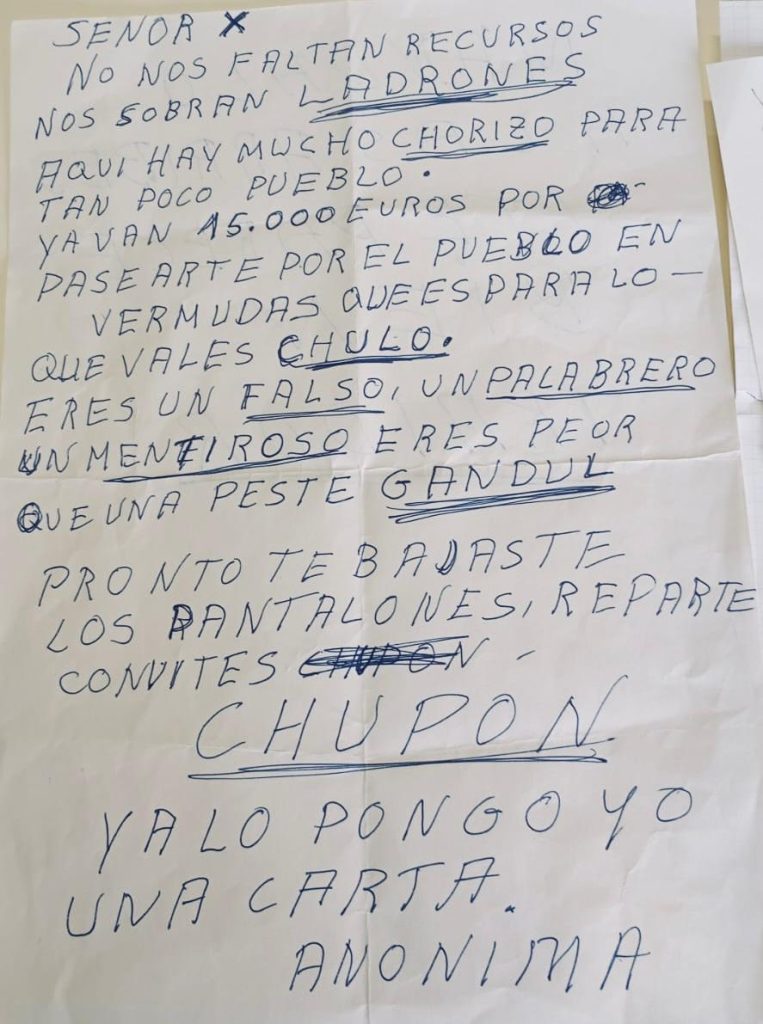 SENOR X
NO NOS FALTAN RECURSOS
NOS SOBRAN LADRONES
AQUI HAY MUCHO CHORIZO PARA
TAN POCO PUEBLO.
YA VAN 15.000 EUROS POR
PASEARTE POR EL PUEBLO EN
VERMUDAS QUE ES PARA LO -
QUE VALES CHULO.
ERES UN FALSO, UN PALABRERO
UN MENTIROSO ERES PEOR
QUE UNA PESTE GANDUL
PRONTO TE BAJASTE
LOS PANTALONES, REPARTE
CONVITES CHUPON -
CHUPON
YA LO PONGO YO
UNA CARTA.
ANONIMA